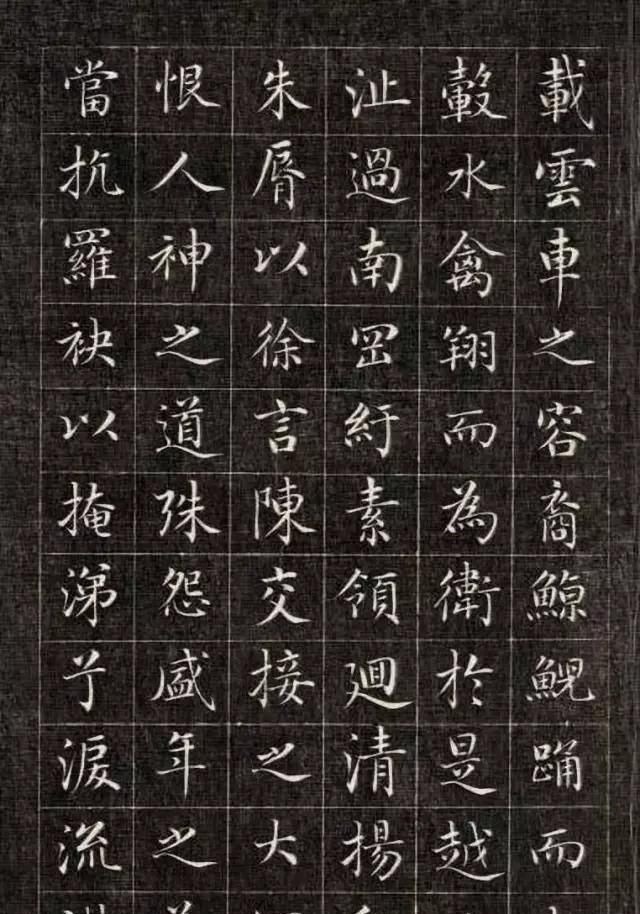 載雲車之容裔鯨鯢踊而
轂水禽翔而為衛於是越
沚過南罡紆素領迴清揚
朱脣以徐言陳交接之大
恨人神之道殊怨盛年之
當抗羅袂以掩涕兮淚流